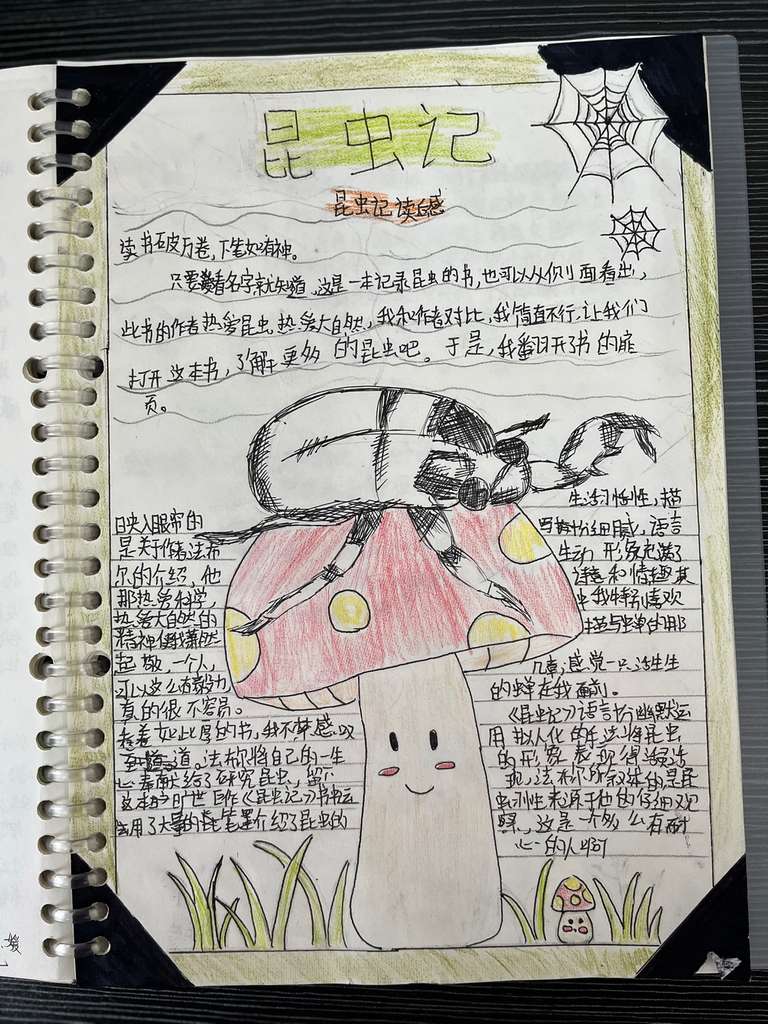 昆虫记
昆虫记读后感
读书破万卷,下笔如有神。
只要看名字就知道,这是一本记录昆虫的书,也可以从侧面看出,
此书的作者热爱昆虫,热爱大自然,我和作者对比,我简直不行,让我们
打开这本书,了解更多的昆虫吧。于是,我翻开了书的扉
页。
映入眼帘的
是关于作者法布
尔的介绍,他
那热爱科学,
热爱大自然的
精神使我肃然
起敬,一个人,
可以这么有毅力
真的很不容易。
看着如此厚的书,我不禁感叹
道,法布尔将自己的一生
奉献给了研究昆虫,留
这本旷世巨作《昆虫记》书
用了大量的笔墨介绍了昆虫的
生活习性,描
写十分细腻,语言
生动形象充满了
和情趣其
中我特别喜欢
描写蝉的那
几章,感觉一只活生生
的蝉在我面前。
《昆虫记》语言十分幽默运
用拟人化的手法将昆虫
的形象表现得
现,法布尔所叙述的是昆
虫习性来源于他的仔细观
察,这是一个多么有耐
心的人啊